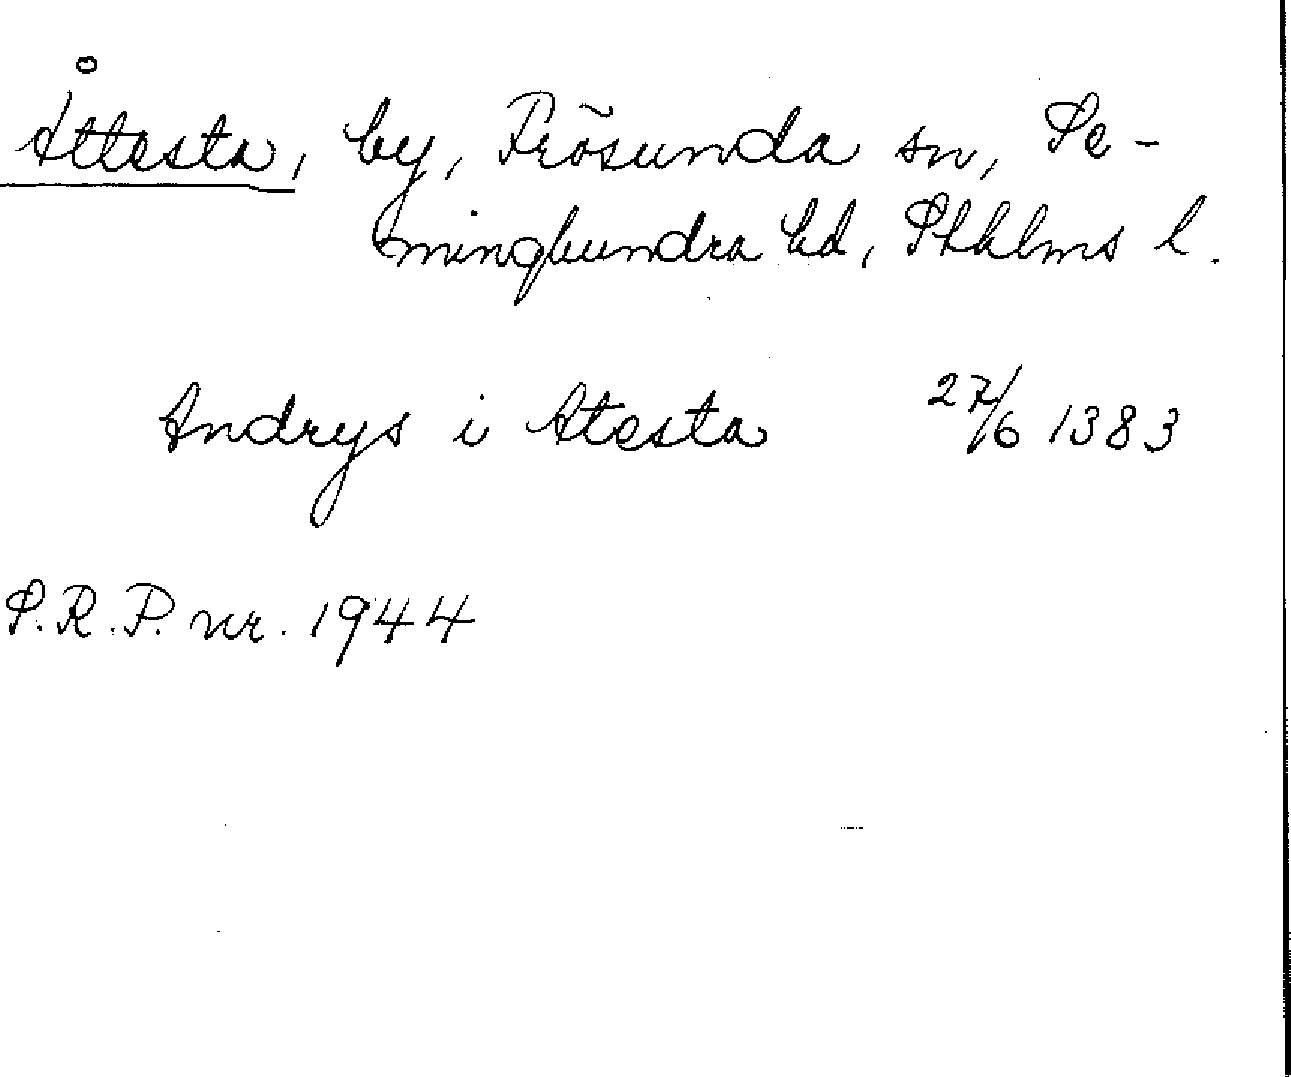 Åttesta, by, Frösunda sn, Se-
minghundra hd, Sthlms l.
Andrys i Atesta 27/6 1383
S.R.P. nr. 1944